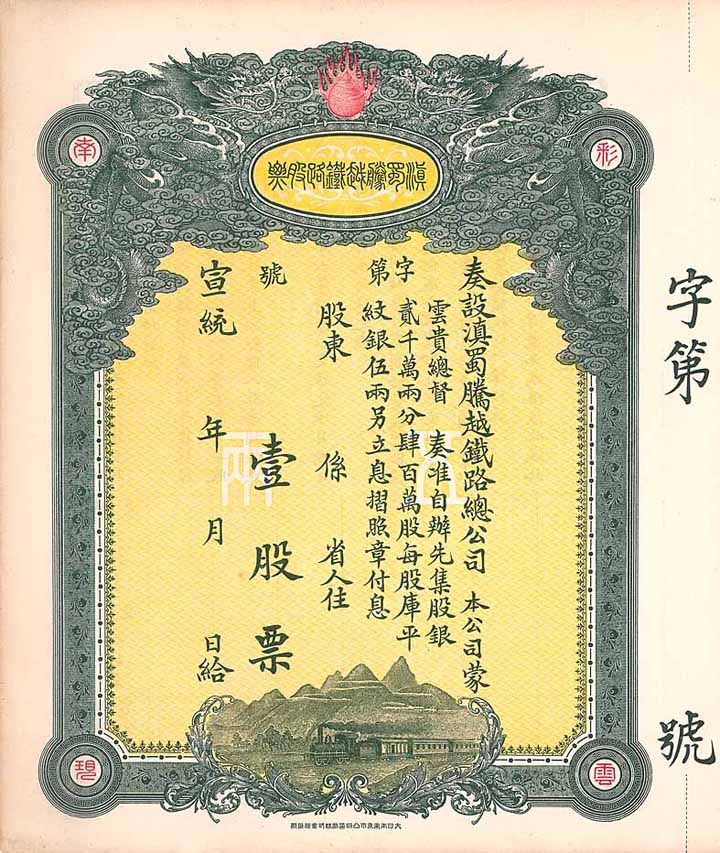 字第 號
滇蜀騰越鐵路股票
彩
雲
南
現
奏設滇蜀騰越鐵路總公司 本公司蒙
雲貴總督 奏准自辦先集股銀
貳千萬兩分肆百萬股每股庫平
紋銀伍兩另立息摺照章付息
股東 係 省人住
字第
號
壹股票
宣統 年 月 日給
五兩